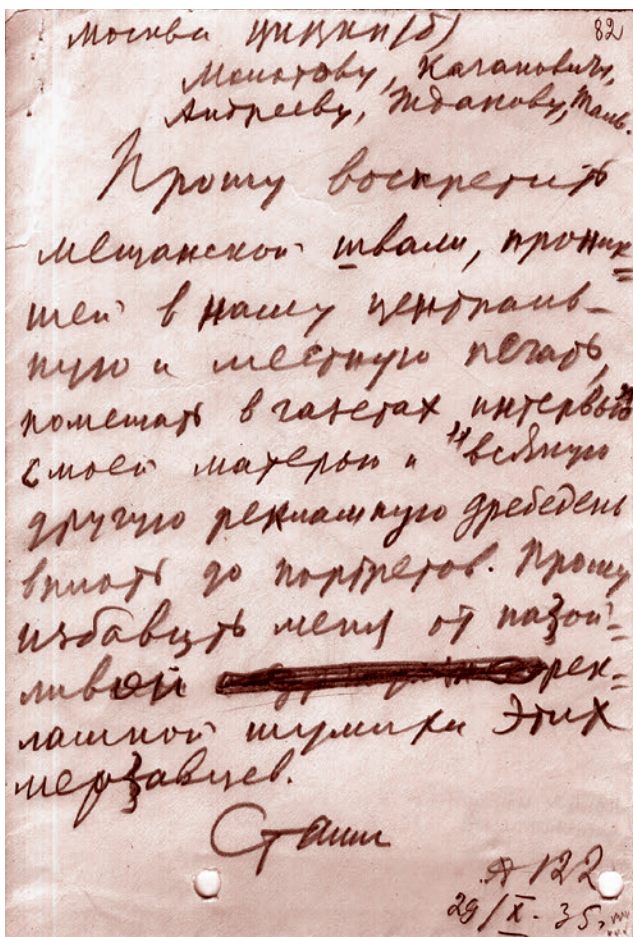 82
Москва ЦКВКП(б)
Молотову, Кагановичу,
Андрееву, Жданову, Таль.
Прошу воспретить
мещанской швали, проник-
шей в нашу централь-
ную и местную печать,
помещать в газетах "интервью"
с моей матерью и всякую
другую рекламную дребедень
вплоть до портретов. Прошу
избавить меня от назой-
ливой рек-
ламной шумихи этих
мерзавцев.
Сталин
№ 122
29/X - 35.